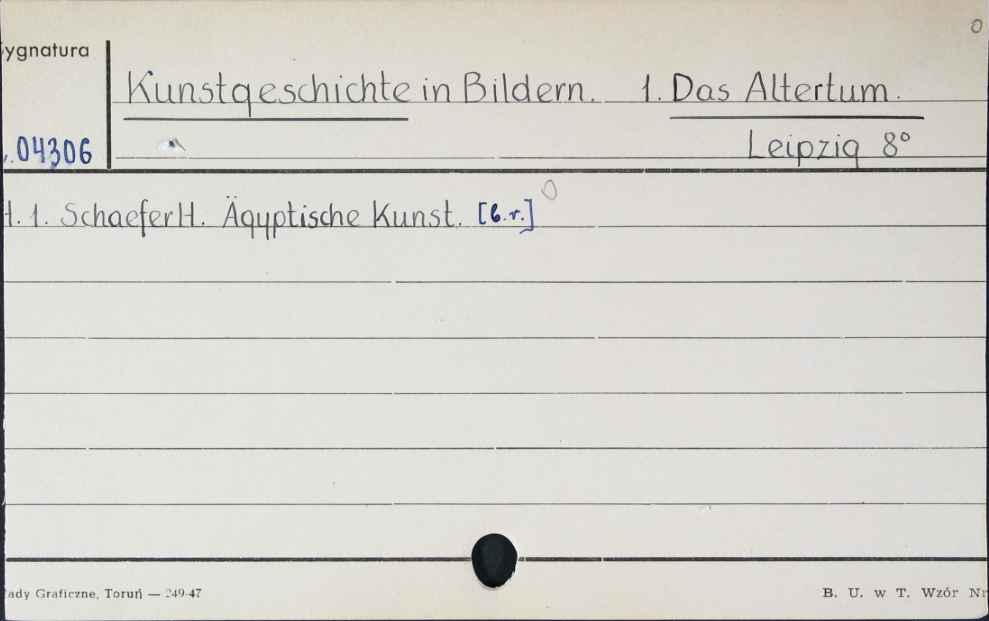 ygnatura
Kunstgeschichte in Bildern. 1. Das Altertum.
.04306
Leipzig 8°
H. 1. Schaefer H. Ägyptische Kunst. [b.r.]
ady Graficzne, Toruń — 249-47
B. U. w T. Wzór Nr